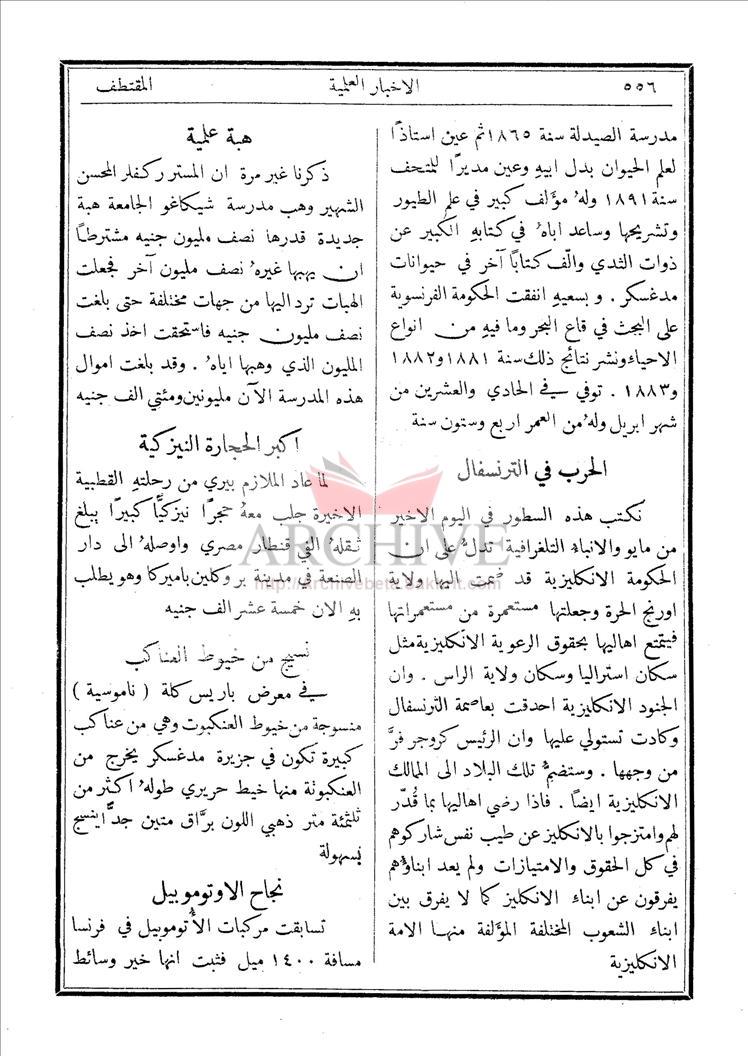 ٥٥٦ الاخبار العلمية المقتطف
مدرسة الصيدلة سنة ١٨٦٥ ثم عين استاذًا
لعلم الحيوان بدل ابيهِ وعين مديرًا للمتحف
سنة ١٨٩١ ولهُ مؤلف كبير في علم الطيور
وتشريحها وساعد اباهُ في كتابهِ الكبير عن
ذوات الثدي والّف كتابًا آخر في حيوانات
مدغسكر . وبسعيهِ انفقت الحكومة الفرنسوية
على البحث في قاع البحر وما فيهِ من انواع
الاحياء ونشر نتائج ذلك سنة ١٨٨١ و١٨٨٢
و١٨٨٣ . توفي في الحادي والعشرين من
شهر ابريل ولهُ من العمر اربع وستون سنة
الحرب في الترنسفال
نكتب هذه السطور في اليوم الاخير
من مايو والانباء التلغرافية تدلُّ على ان
الحكومة الانكليزية قد ضمت اليها ولاية
اورنج الحرة وجعلتها مستعمرة من مستعمراتها
فيتمتع اهاليها بحقوق الرعوية الانكليزية مثل
سكان استراليا وسكان ولاية الراس . وان
الجنود الانكليزية احدقت بعاصمة الترنسفال
وكادت تستولي عليها وان الرئيس كروجر فرَّ
من وجهها . وستضمُّ تلك البلاد الى الممالك
الانكليزية ايضًا . فاذا رضي اهاليها بما قُدّر
لهم وامتزجوا بالانكليز عن طيب نفس شاركوهم
في كل الحقوق والامتيازات ولم يعد ابناؤهم
يفرقون عن ابناء الانكليز كما لا يفرق بين
ابناء الشعوب المختلفة المؤلفة منها الامة
الانكليزية
هبة علمية
ذكرنا غير مرة ان المستر ركفلر المحسن
الشهير وهب مدرسة شيكاغو الجامعة هبة
جديدة قدرها نصف مليون جنيه مشترطًا
ان يهبها غيرهُ نصف مليون آخر فجعلت
الهبات ترد اليها من جهات مختلفة حتى بلغت
نصف مليون جنيه فاستحقت اخذ نصف
المليون الذي وهبها اياهُ . وقد بلغت اموال
هذه المدرسة الآن مليونين ومئتي الف جنيه
اكبر الحجارة النيزكية
لما عاد الملازم بيري من رحلتهِ القطبية
الاخيرة جلب معهُ حجرًا نيزكيًّا كبيرًا يبلغ
ثقلهُ الفي قنطار مصري واوصلهُ الى دار
الصنعة في مدينة بروكلين باميركا وهو يطلب
بهِ الان خمسة عشر الف جنيه
نسيج من خيوط العناكب
في معرض باريس كلة ( ناموسية )
منسوجة من خيوط العنكبوت وهي من عناكب
كبيرة تكون في جزيرة مدغسكر يخرج من
العنكبوتة منها خيط حريري طولهُ اكثر من
ثلثمئة متر ذهبي اللون برَّاق متين جدًّا ينسج
بسهولة
نجاح الاوتوموبيل
تسابقت مركبات الأُتوموبيل في فرنسا
مسافة ١٤٠٠ ميل فثبت انها خير وسائط
ARCHIVE